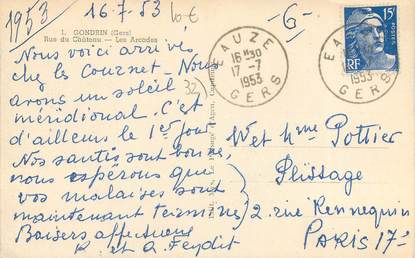 1953
16-7-53
10€
-6-
1. GONDRIN (Gers)
Rue du Château — Les Arcades
Nous voici arrivés
chez les Cournet - Nous
avons un soleil
méridional. C'est
d'ailleurs le 1er jour
Nos santés sont bonnes,
nous espérons que
vos malaises sont
maintenant terminés
Baisers affectueux
R et A. Feydit
32
EAUZE
16H30
17-7
1953
GERS
EAUZE
1953
GERS
15F
RF
POSTES
M et Mme Pottier
Plissage
2. rue Rennequin
PARIS 17e